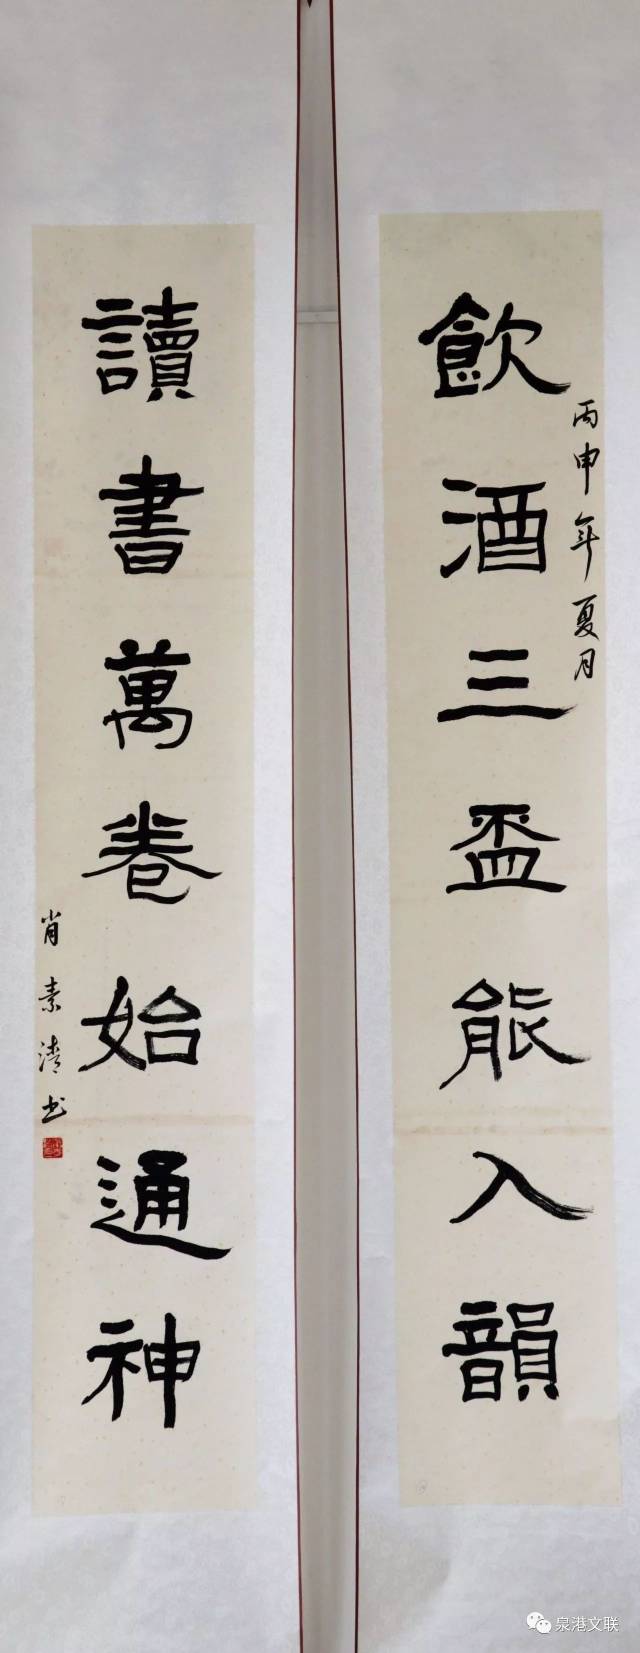 飲酒三盃能入韻
丙申年夏月
讀書萬卷始通神
肖素清书
泉港文联